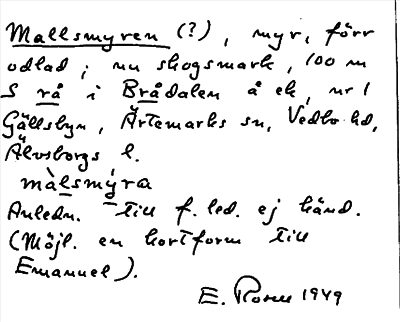 Mallsmyren (?), myr, förr
odlad; nu skogsmark, 100 m
S rå i Brådalen å ek, nr 1
Gällsbyn, Ärtemarks sn, Vedbo hd,
Älvsborgs l.
màlsmýra
Anledn. till f. led. ej känd.
(Möjl. en kortform till
Emanuel).
E. Rosell 1949